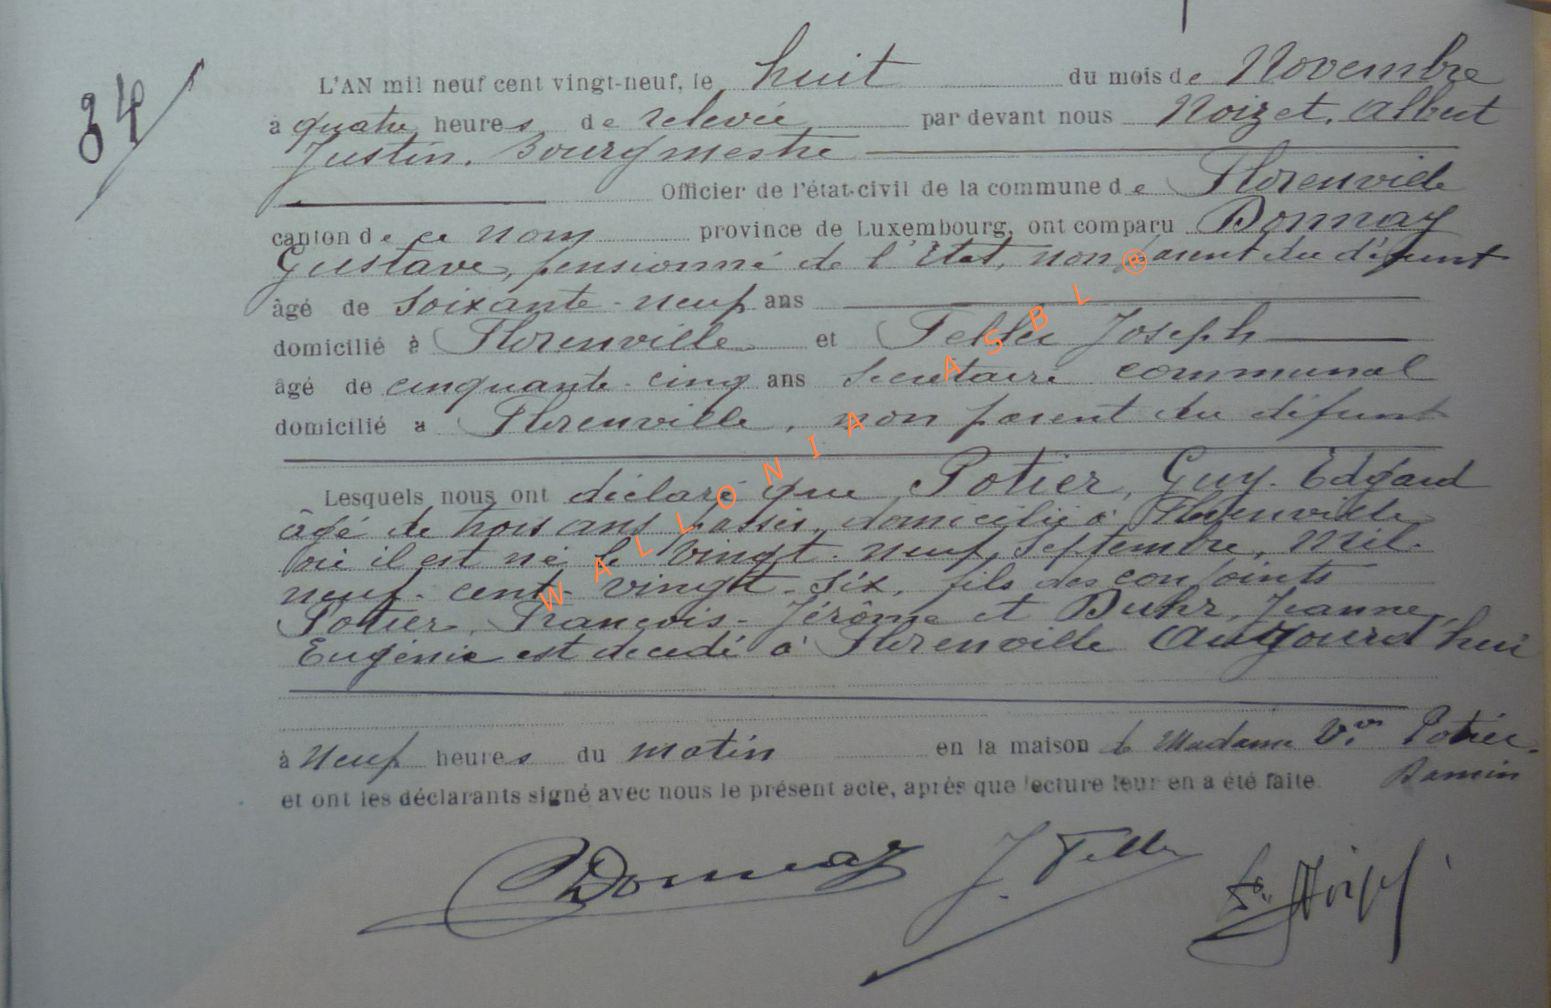 34
L'AN mil neuf cent vingt-neuf, le huit du mois de Novembre
à quatre heures de relevée par devant nous Noizet, Albert
Justin, Bourgmestre
Officier de l'état-civil de la commune de Florenville
canton de ce nom province de Luxembourg, ont comparu Donnay
Gustave, pensionné de l'Etat, non parent du défunt
âgé de soixante-neuf ans
domicilié à Florenville et Feller Joseph
âgé de cinquante-cinq ans secrétaire communal
domicilié à Florenville, non parent du défunt
Lesquels nous ont déclaré que Potier, Guy-Edgard
âgé de trois ans passés, domicilié à Florenville
où il est né le vingt-neuf septembre, mil-
neuf-cent-vingt-six, fils des conjoints
Potier, François-Jérôme et Duhr, Jeanne,
Eugénie est décédé à Florenville aujourd'hui
à neuf heures du matin en la maison de Madame Vve Potier-
Damin
et ont les déclarants signé avec nous le présent acte, après que lecture leur en a été faite.
Donnay J. Feller Noizet
WALLONIA ASBL ®